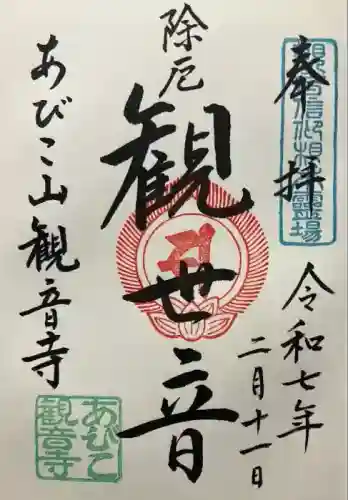 奉拝
令和七年
二月十一日
除厄
観世音
あびこ山観音寺
あびこ
観音寺